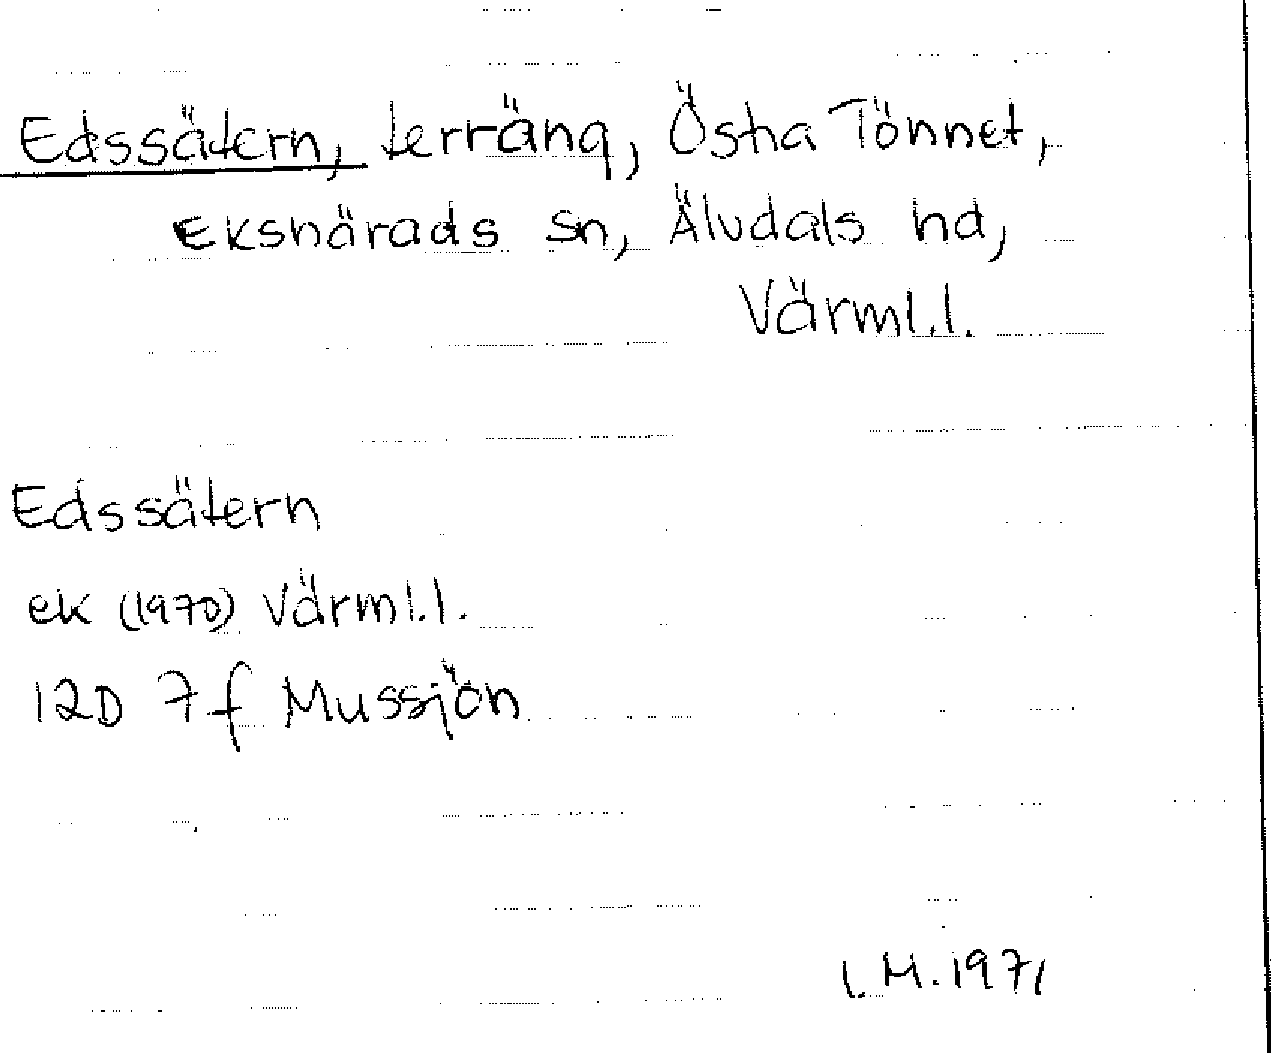 Edssätern, terräng, Östra Tönnet,
Ekshärads sn, Älvdals hd,
Värml.l.
Edssätern
ek (1970) Värml.l.
12D 7f Mussjön
I.M.1971